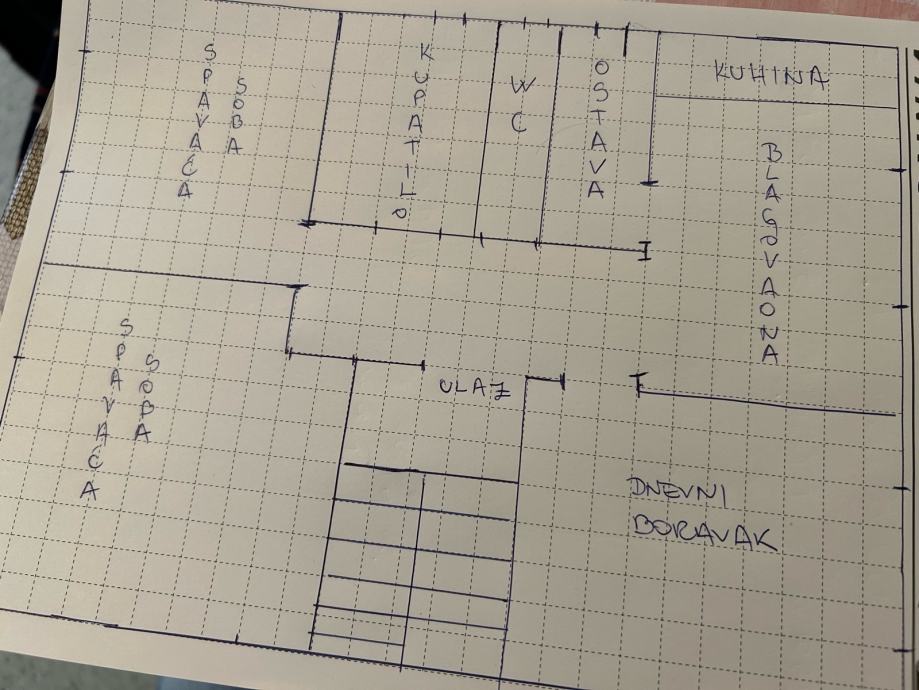 SPAVAĆA
SOBA
KUPATILO
WC
OSTAVA
KUHINA
BLAGOVAONA
SPAVAĆA
SOBA
ULAZ
DNEVNI
BORAVAK